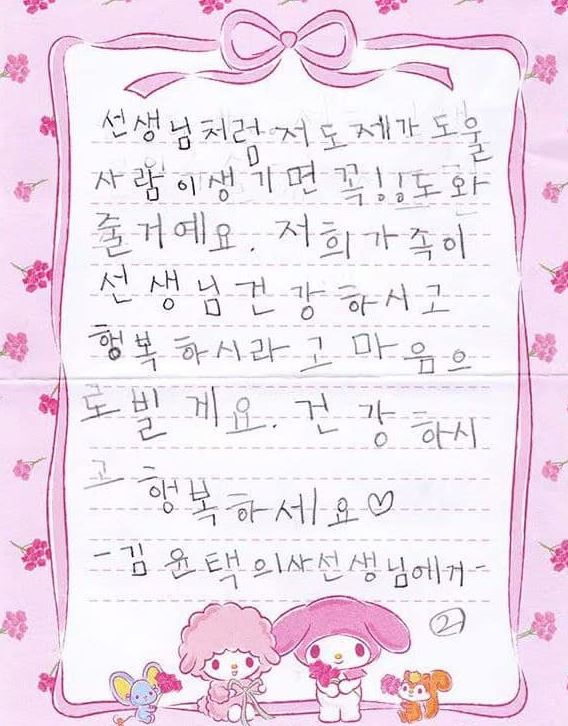 선생님처럼 저도 제가 도울
사람이 생기면 꼭!! 도와
줄거예요. 저희 가족이
선생님 건강하시고
행복하시라고 마음으
로 빌게요. 건강하시
고 행복하세요♡
-김윤택 의사선생님에게-
②